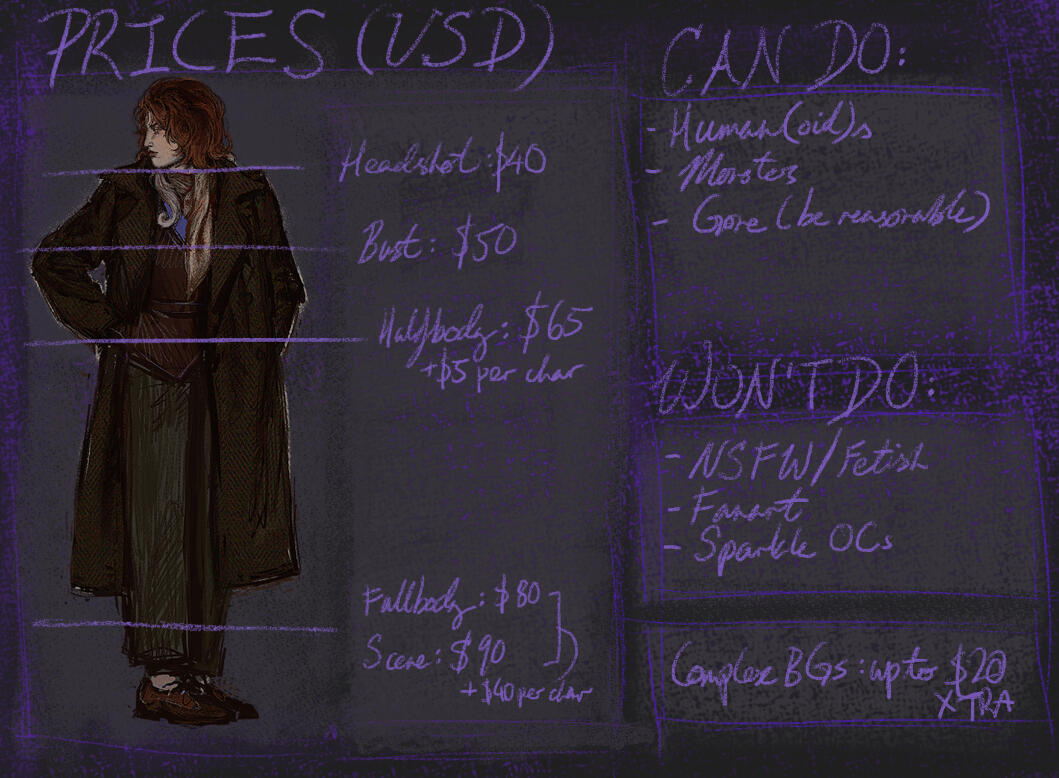 PRICES (USD)
Headshot: $40
Bust: $50
Halfbody: $65
+$5 per char
Fullbody: $80
Scene: $90
+$40 per char
CAN DO:
- Human(oid)s
- Monsters
- Gore (be reasonable)
WON'T DO:
- NSFW/Fetish
- Fanart
- Sparkle OCs
Complex BGs: up to $20
XTRA